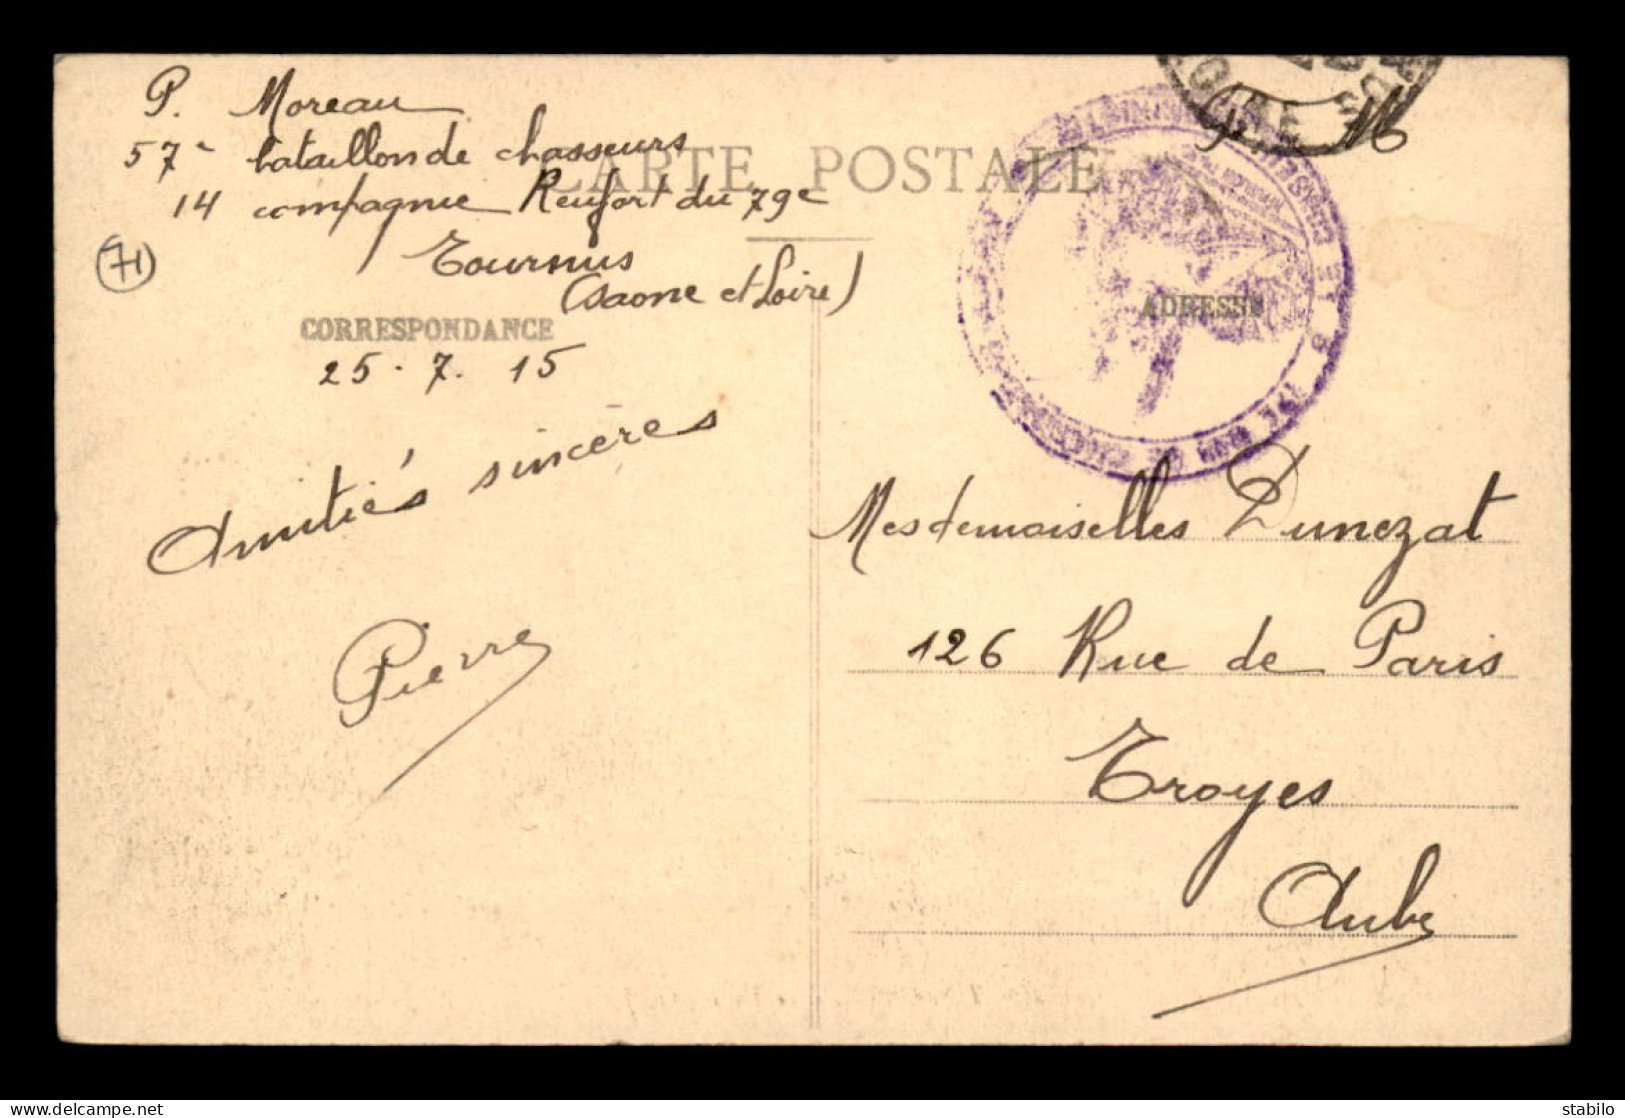 P. Moreau
57e bataillon de chasseurs
14 compagnie Renfort du 79e
Tournus
(Saone et Loire)
71
CARTE POSTALE
F M
CORRESPONDANCE
25 . 7 . 15
ADRESSE
Amitiés sincères
Pierre
Mesdemoiselles Dunezat
126 Rue de Paris
Troyes
Aube
delcampe.net
stabilo